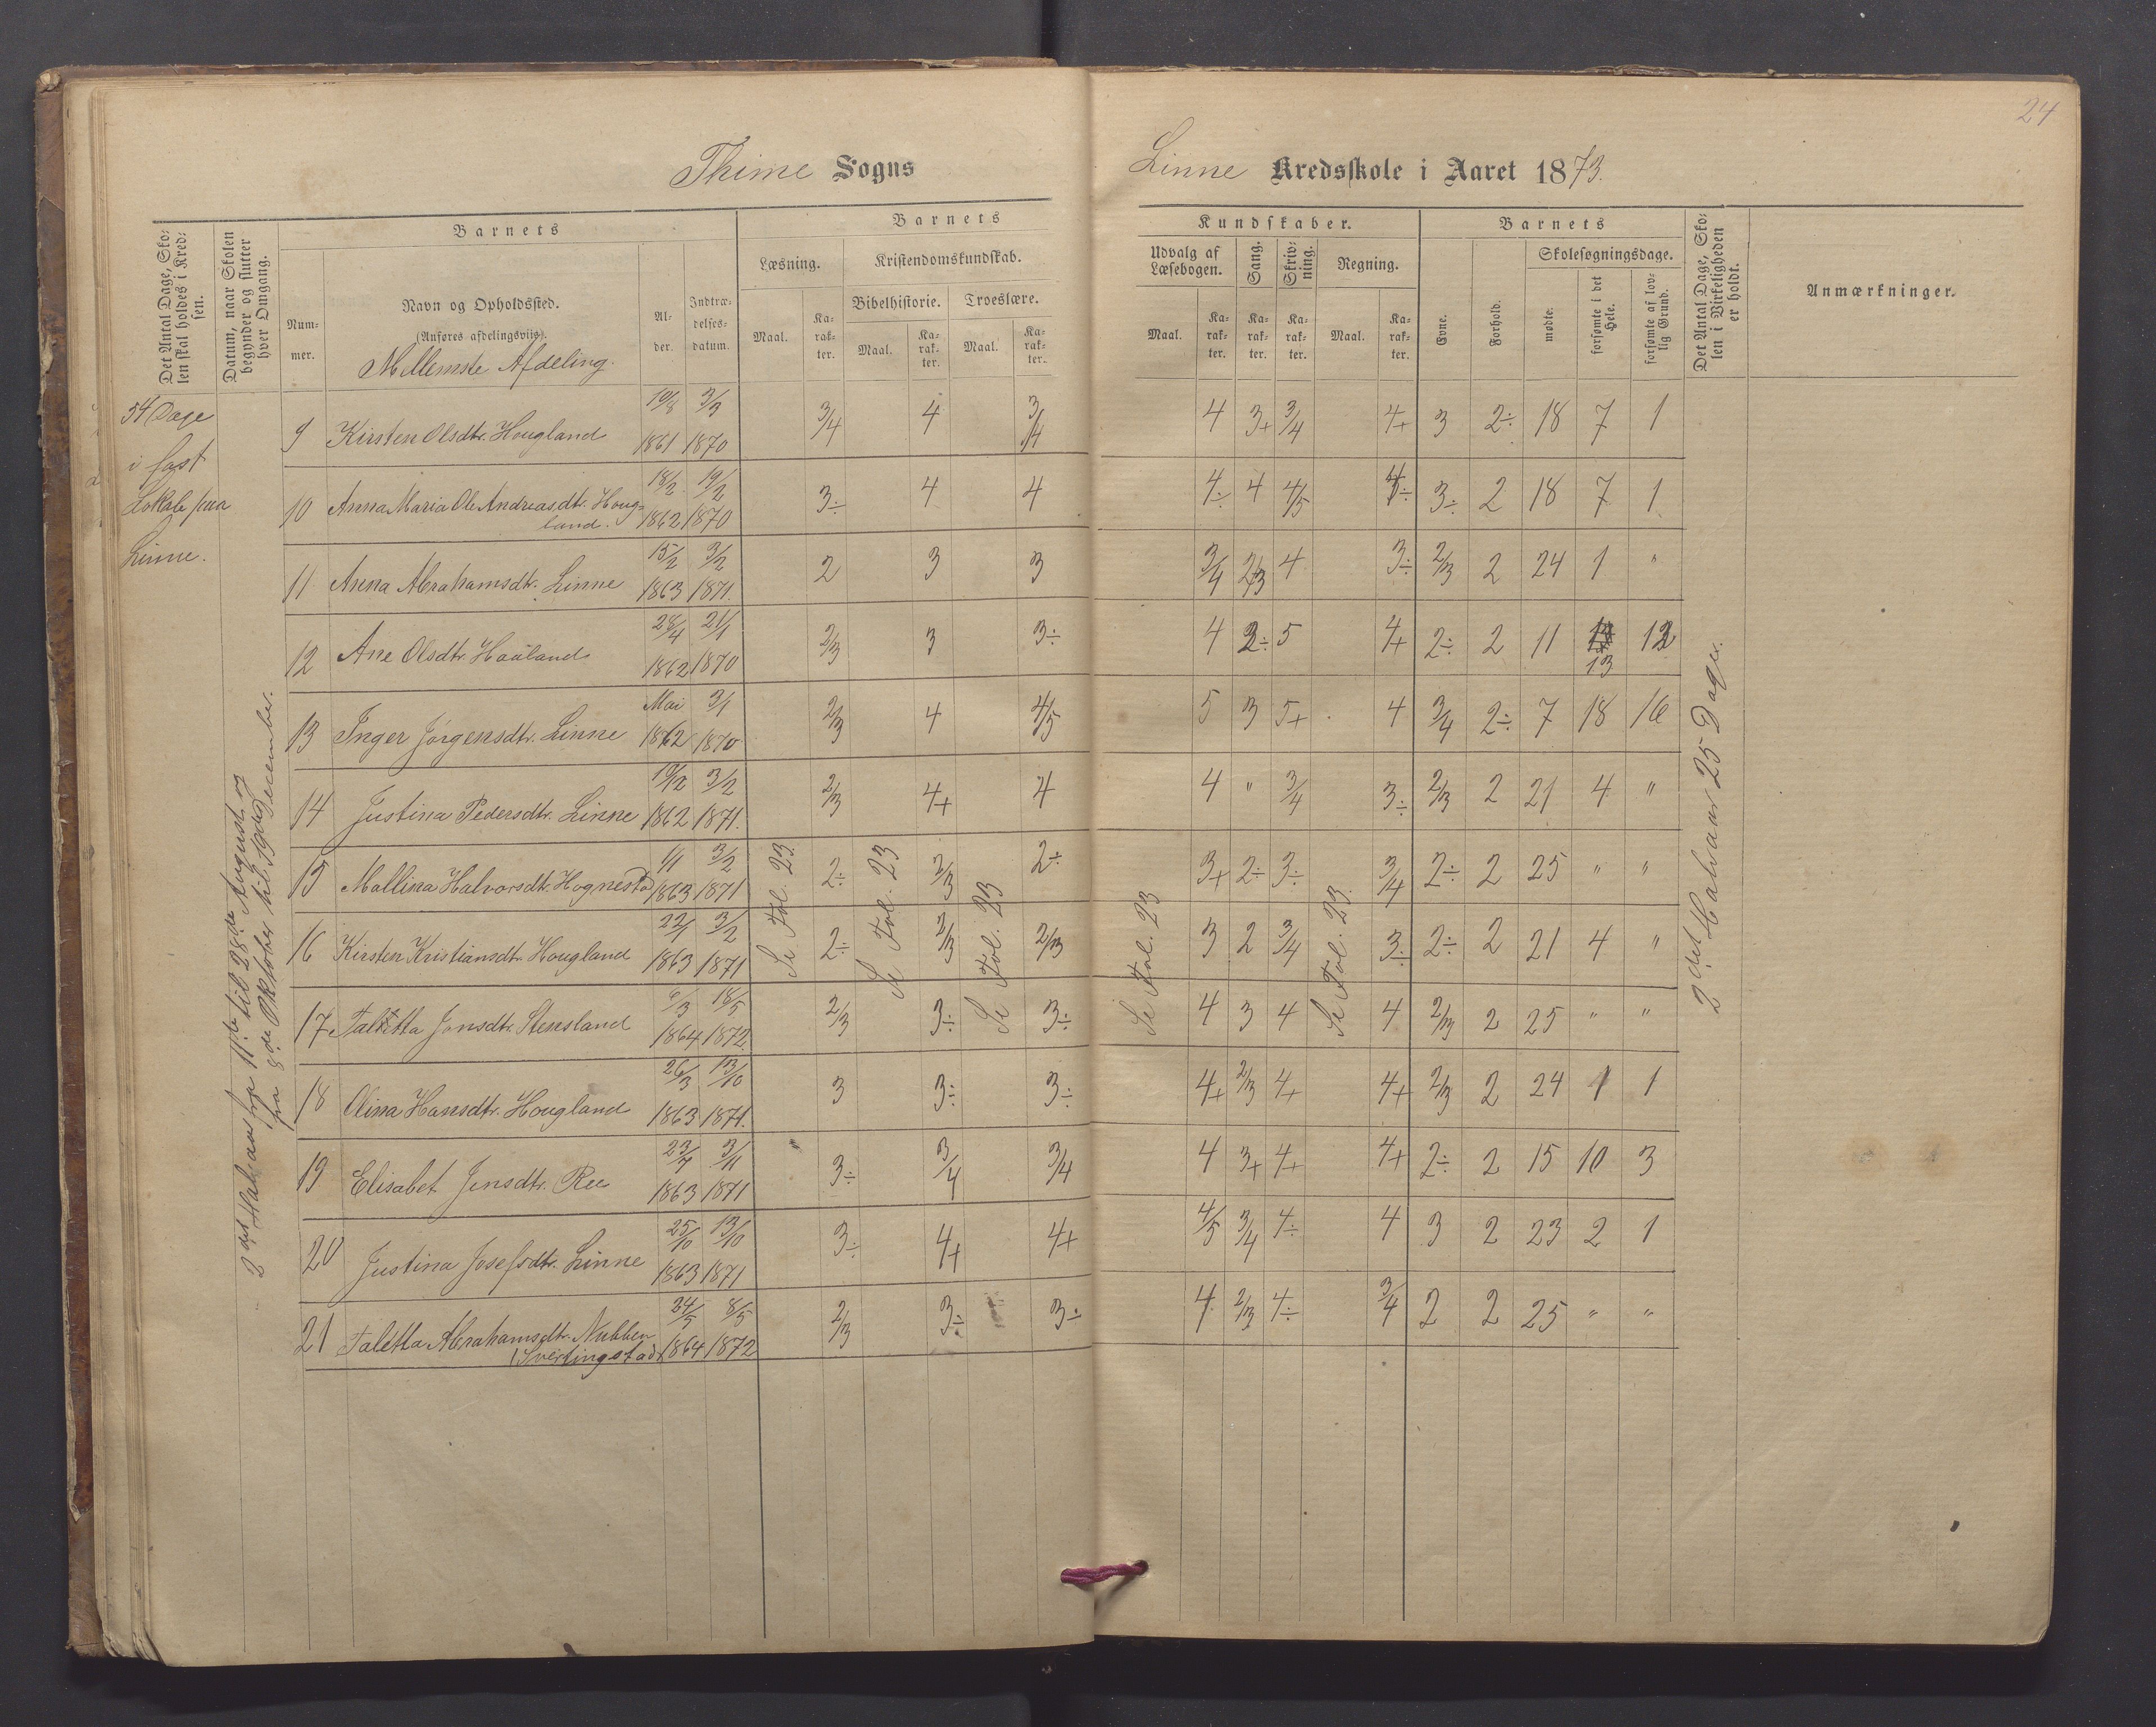 24
Thime Sogns
Linne Kredsskole i Aaret 1873.
Det Antal Dage, Sko-
len skal holdes i Kred-
sen.
Datum, naar Skolen
begynder og slutter
hver Omgang.
Barnets
Num-
mer.
Navn og Opholdssted.
(Anføres afdelingsviis).
Mellemste Afdeling.
Al-
der.
Indtræ-
delses-
datum.
Barnets
Læsning.
Maal.
Ka-
rak-
ter.
Kristendomskundskab.
Bibelhistorie.
Maal.
Ka-
rak-
ter.
Troeslære.
Maal.
Ka-
rak-
ter.
Kundskaber.
Udvalg af
Læsebogen.
Maal.
Ka-
rak-
ter.
Sang.
Ka-
rak-
ter.
Skriv-
ning.
Ka-
rak-
ter.
Regning.
Maal.
Ka-
rak-
ter.
Barnets
Evne.
Forhold.
Skolesøgningsdage.
mødte.
forsømte i det
Hele.
forsømte af lov-
lig Grund.
Det Antal Dage, Sko-
len i Virkeligheden
er holdt.
Anmærkninger.
54 Dage
i fast
Lokale paa
Linne.
2det Halvaar fra 11te til 28de August og
fra 8de Oktober til 19de December.
9 Kirsten Olsdtr. Hougland 19/8 1861 3/3 1870 3/4 4 3/4 4 3+ 3/4 4+ 3 2÷ 18 7 1
10 Anna Maria Ole Andreasdtr. Houg-
land. 18/2 1862 19/2 1870 3÷ 4 4 4÷ 4 4/5 4÷ 3÷ 2 18 7 1
11 Anna Abrahamsdtr. Linne 15/2 1863 3/2 1871. 2 3 3 3/4 2/3 4 3÷ 2/3 2 24 1 "
12 Ane Olsdtr. Hauland 28/4 1862 21/1 1870 2/3 3 3÷ 4 2÷ 5 4+ 2÷ 2 11 13 12
13 Inger Jørgensdtr. Linne Mai 1862 3/1 1870 2/3 4 4/5 5 3 5+ 4 3/4 2÷ 7 18 16
14 Justina Pedersdtr. Linne 19/12 1862 3/2 1871. 2/3 4+ 4 4 " 3/4 3÷ 2/3 2 21 4 "
15 Mallina Halvorsdtr. Hognestad 1/1 1863 3/2 1871 2÷ 2/3 2÷ 3+ 2÷ 3÷ 3/4 2÷ 2 25 " "
16 Kirsten Kristiansdtr. Hougland 22/1 1863 3/2 1871 2÷ 2/3 2/3 3 2 3/4 3÷ 2÷ 2 21 4 "
17 Taletta Jonsdtr. Stensland 6/3 1864 18/5 1872. 2/3 3÷ 3÷ 4 3 4 4 2/3 2 25 " "
18 Olina Hansdtr. Hougland 26/3 1863 13/10 1871. 3 3÷ 3÷ 4+ 2/3 4+ 4+ 2/3 2 24 1 1
19 Elisabet Jensdtr. Ree 23/7 1863 3/11 1871 3÷ 3/4 3/4 4 3+ 4+ 4+ 2÷ 2 15 10 3
20 Justina Josefsdtr. Linne 25/10 1863 13/10 1871 3÷ 4+ 4+ 4/5 3/4 4÷ 4 3 2 23 2 1
21 Taletta Abrahamsdtr. Nubben
(Svertingstad) 24/5 1864 8/5 1872 2/3 3÷ 3÷ 4 2/3 4÷ 3/4 2 2 25 " "
Se Fol. 23.
Se Fol. 23
Se Fol. 23
Se Fol. 23
Se Fol. 23.
2det Halvaar 25 Dage.